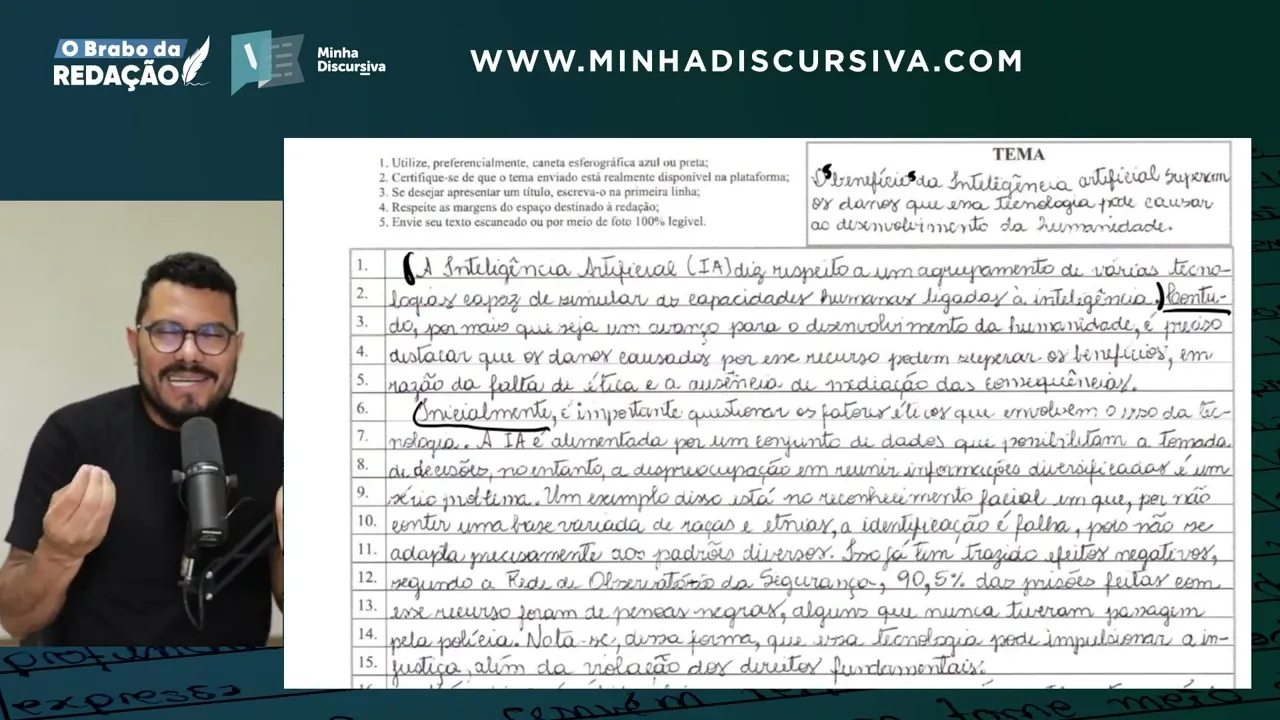 O Brabo da
REDAÇÃO
Minha
Discursiva
WWW.MINHADISCURSIVA.COM
1. Utilize, preferencialmente, caneta esferográfica azul ou preta;
2. Certifique-se de que o tema enviado está realmente disponível na plataforma;
3. Se desejar apresentar um título, escreva-o na primeira linha;
4. Respeite as margens do espaço destinado à redação;
5. Envie seu texto escaneado ou por meio de foto 100% legível.
TEMA
Os benefícios da Inteligência artificial superam
os danos que essa tecnologia pode causar
ao desenvolvimento da humanidade.
1. A Inteligência Artificial (IA) diz respeito a um agrupamento de várias tecno-
2. logias capaz de simular as capacidades humanas ligadas à inteligência. Contu-
3. do, por mais que seja um avanço para o desenvolvimento da humanidade, é preciso
4. destacar que os danos causados por esse recurso podem superar os benefícios, em
5. razão da falta de ética e a ausência de mediação das consequências.
6. Inicialmente, é importante questionar os fatores éticos que envolvem o uso da tec-
7. nologia. A IA é alimentada por um conjunto de dados que possibilitam a tomada
8. de decisões, no entanto, a despreocupação em reunir informações diversificadas é um
9. sério problema. Um exemplo disso está no reconhecimento facial em que, por não
10. conter uma base variada de raças e etnias, a identificação é falha, pois não se
11. adapta precisamente aos padrões diversos. Isso já tem trazido efeitos negativos,
12. segundo a Rede de Observatório da Segurança, 90,5% das prisões feitas com
13. esse recurso foram de pessoas negras, alguns que nunca tiveram passagem
14. pela polícia. Nota-se, dessa forma, que essa tecnologia pode impulsionar a in-
15. justiça, além da violação dos direitos fundamentais.